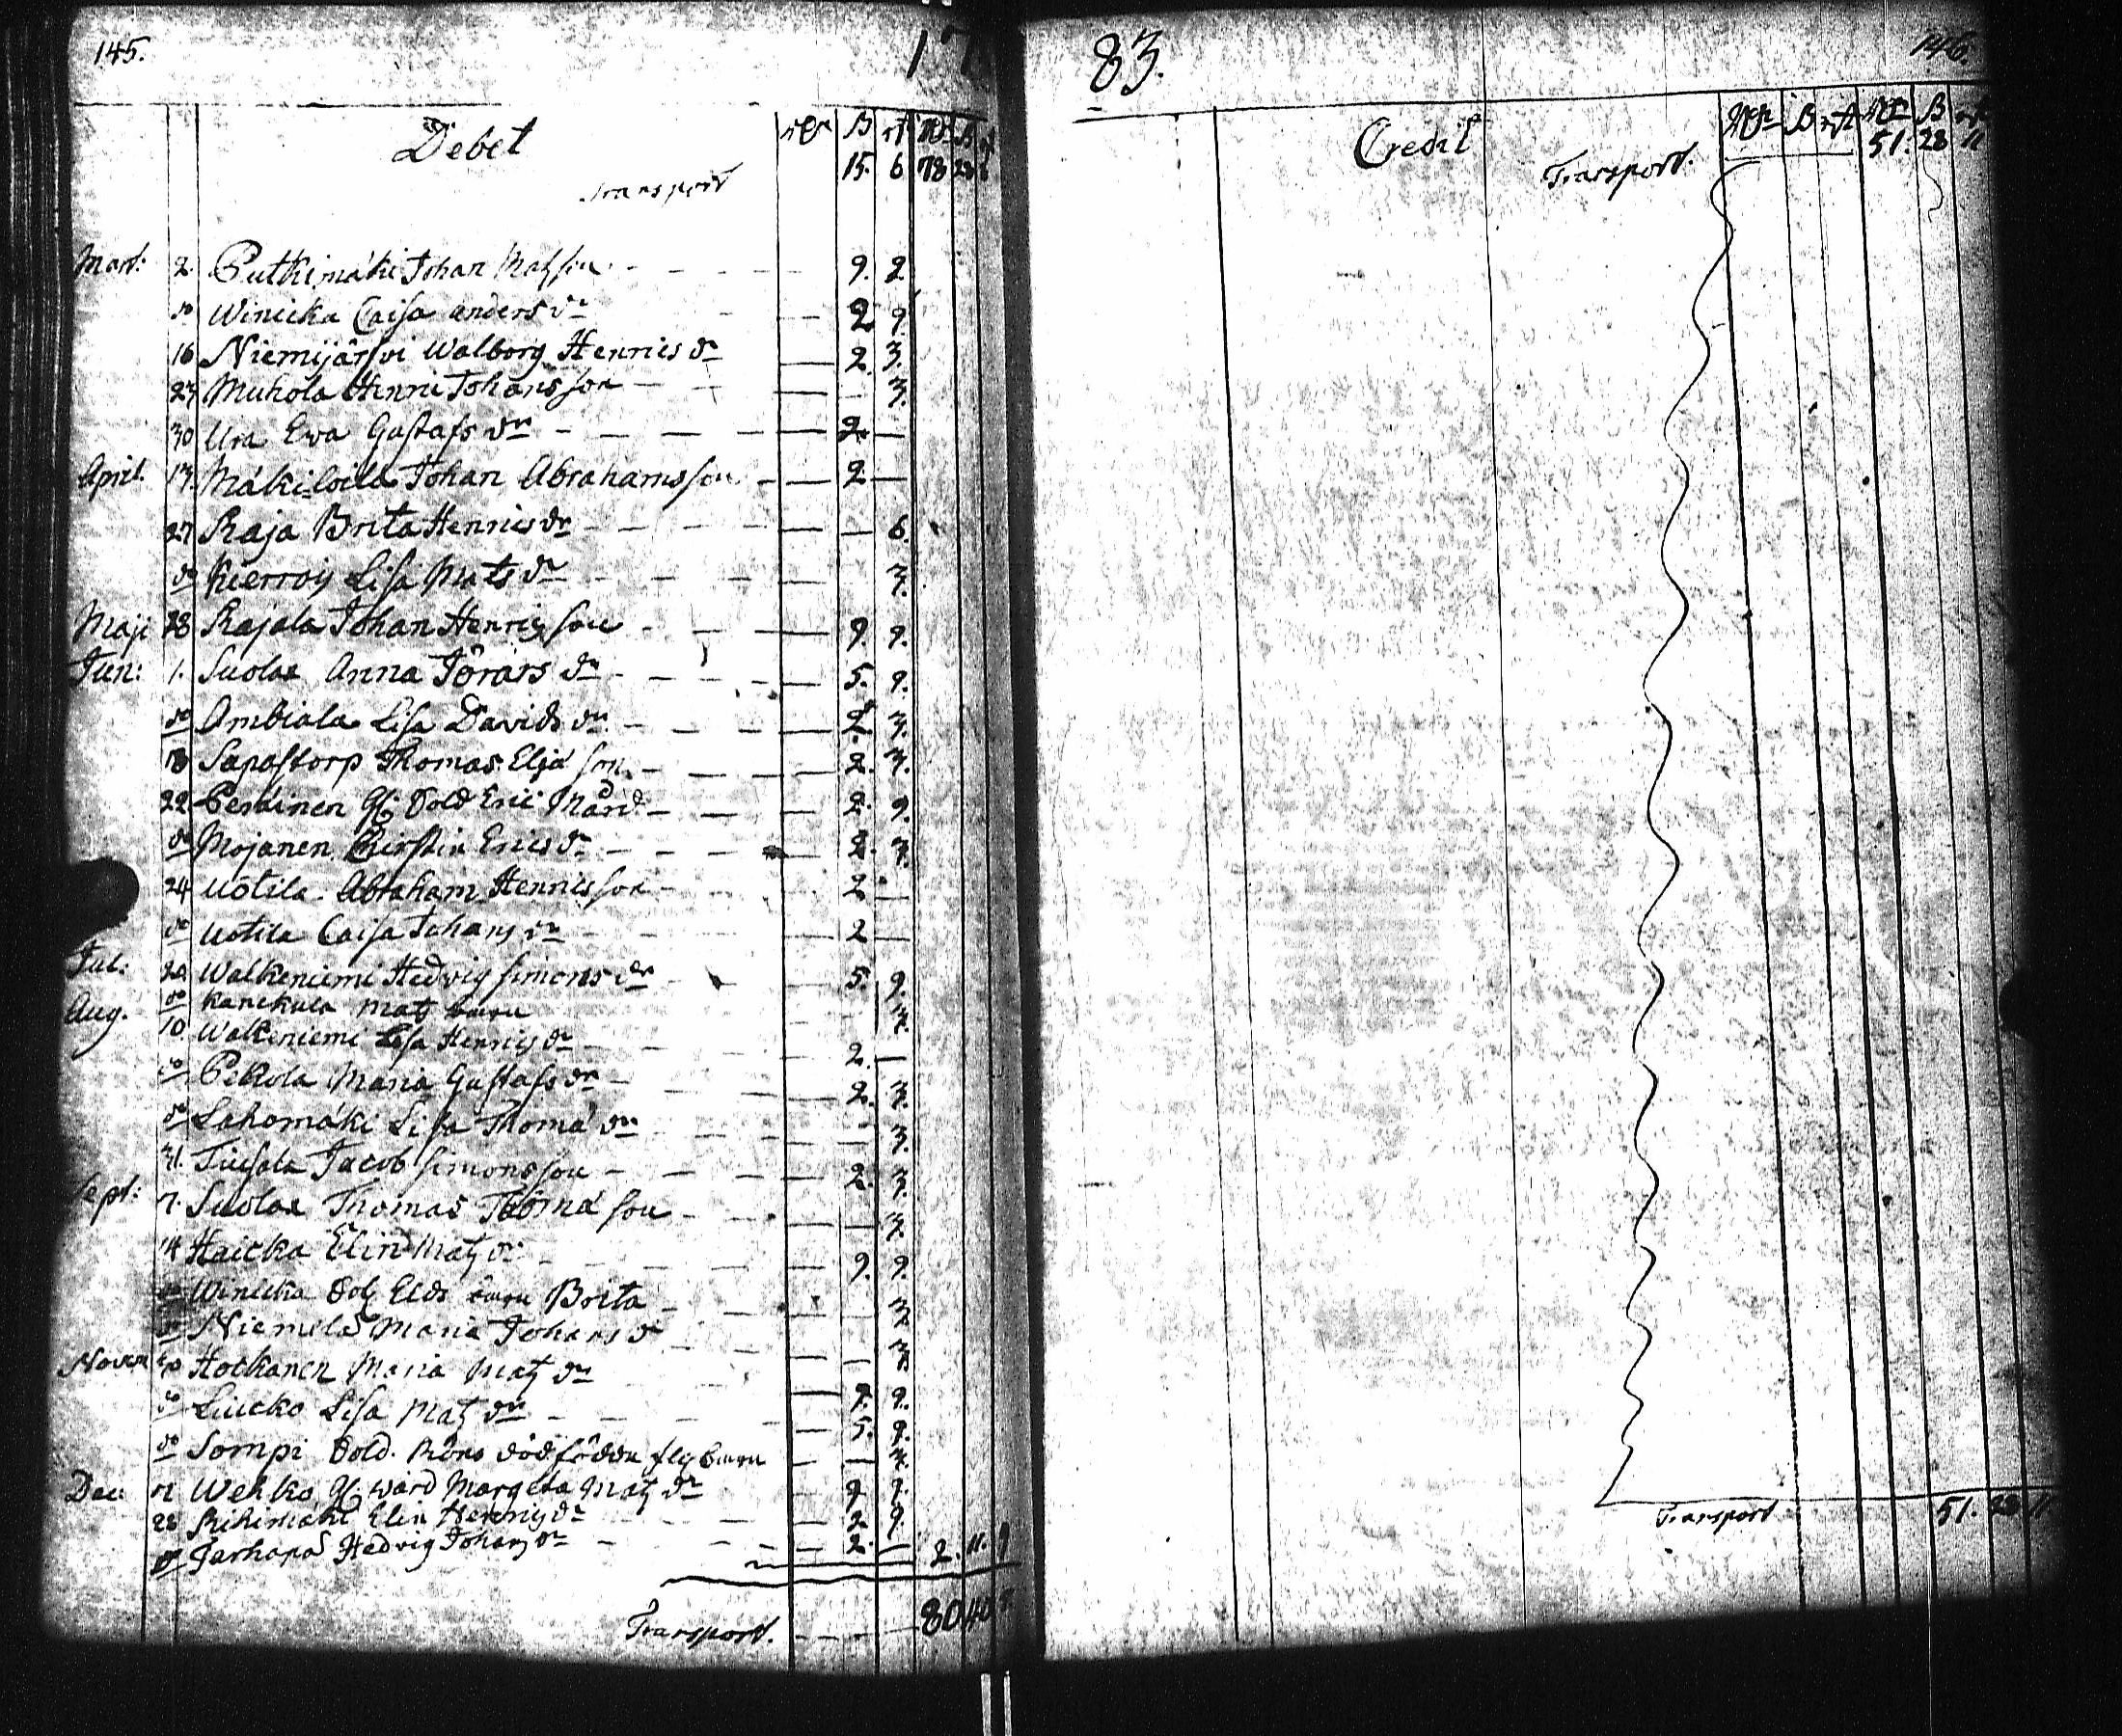 145.
17
Debet
Rdr ß rt Rdr ß rt
Transport 15. 6 78 28
Mart: 2. Putkimäki Johan Matsson 9. 2
do Winicka Caisa anders dr 2 9.
16 Niemijärfvi Walborg Henrics dr 2. 3.
23 Muhola Henric Johansson 3.
30 Ura Ewa Gustafs dr 2.
April. 13. Mäkiloila Johan Abrahamsson 2
27 Raja Brita Henrics dr 6.
do Kierroij Lisa Mats dr 3.
Maji 28 Rajala Johan Henrigsson 9. 9.
Jun: 1. Suolax Anna Jörans dr 5. 9.
do Ambiala Lisa Davids dr 2. 3.
18 Sapastorp Thomas Eljä son 2. 3.
22 Penkinen Gl. Sold Eric Mård 2. 9.
do Mojanen Kirstin Erics dr 2. 3.
24 Uotila Abraham Henricsson 2
do Uotila Caisa Johans dr 2
Jul: 20 Walkeniemi Hedvig Simons dr 5. 9.
do Kanckula Mats barn 3.
Aug. 10. Walkeniemi Lisa Henrigs dr 2.
do Pekola Maria Gustafs dr 2. 3.
do Lahomäki Lisa Thomä dr 3.
31. Tuisala Jacob Simonsson 2. 3.
Sept: 7. Suolax Thomas Thomä son 3.
14 Haicka Elin Mats dr 9. 9.
do Winicka Brita 3.
do Niemelä Maria Johans dr 3.
Novem Hotkanen Maria Mats dr 9. 9.
do Luicko Lisa Mats dr 5. 9.
do Sompi Sold. Röns dödfödda 3.
Dec: Wehko Gl. Margeta Mats dr 9. 9.
28 Rihimäki Elin Henrigs dr 2 9.
do Jarhapä Hedvig Johans dr 2. 2. 11. 9
Transport. 80 40
83.
146.
Credit
Rdr ß rt Rdr ß rt
Transport. 51. 28 11
Transport 51. 28 11